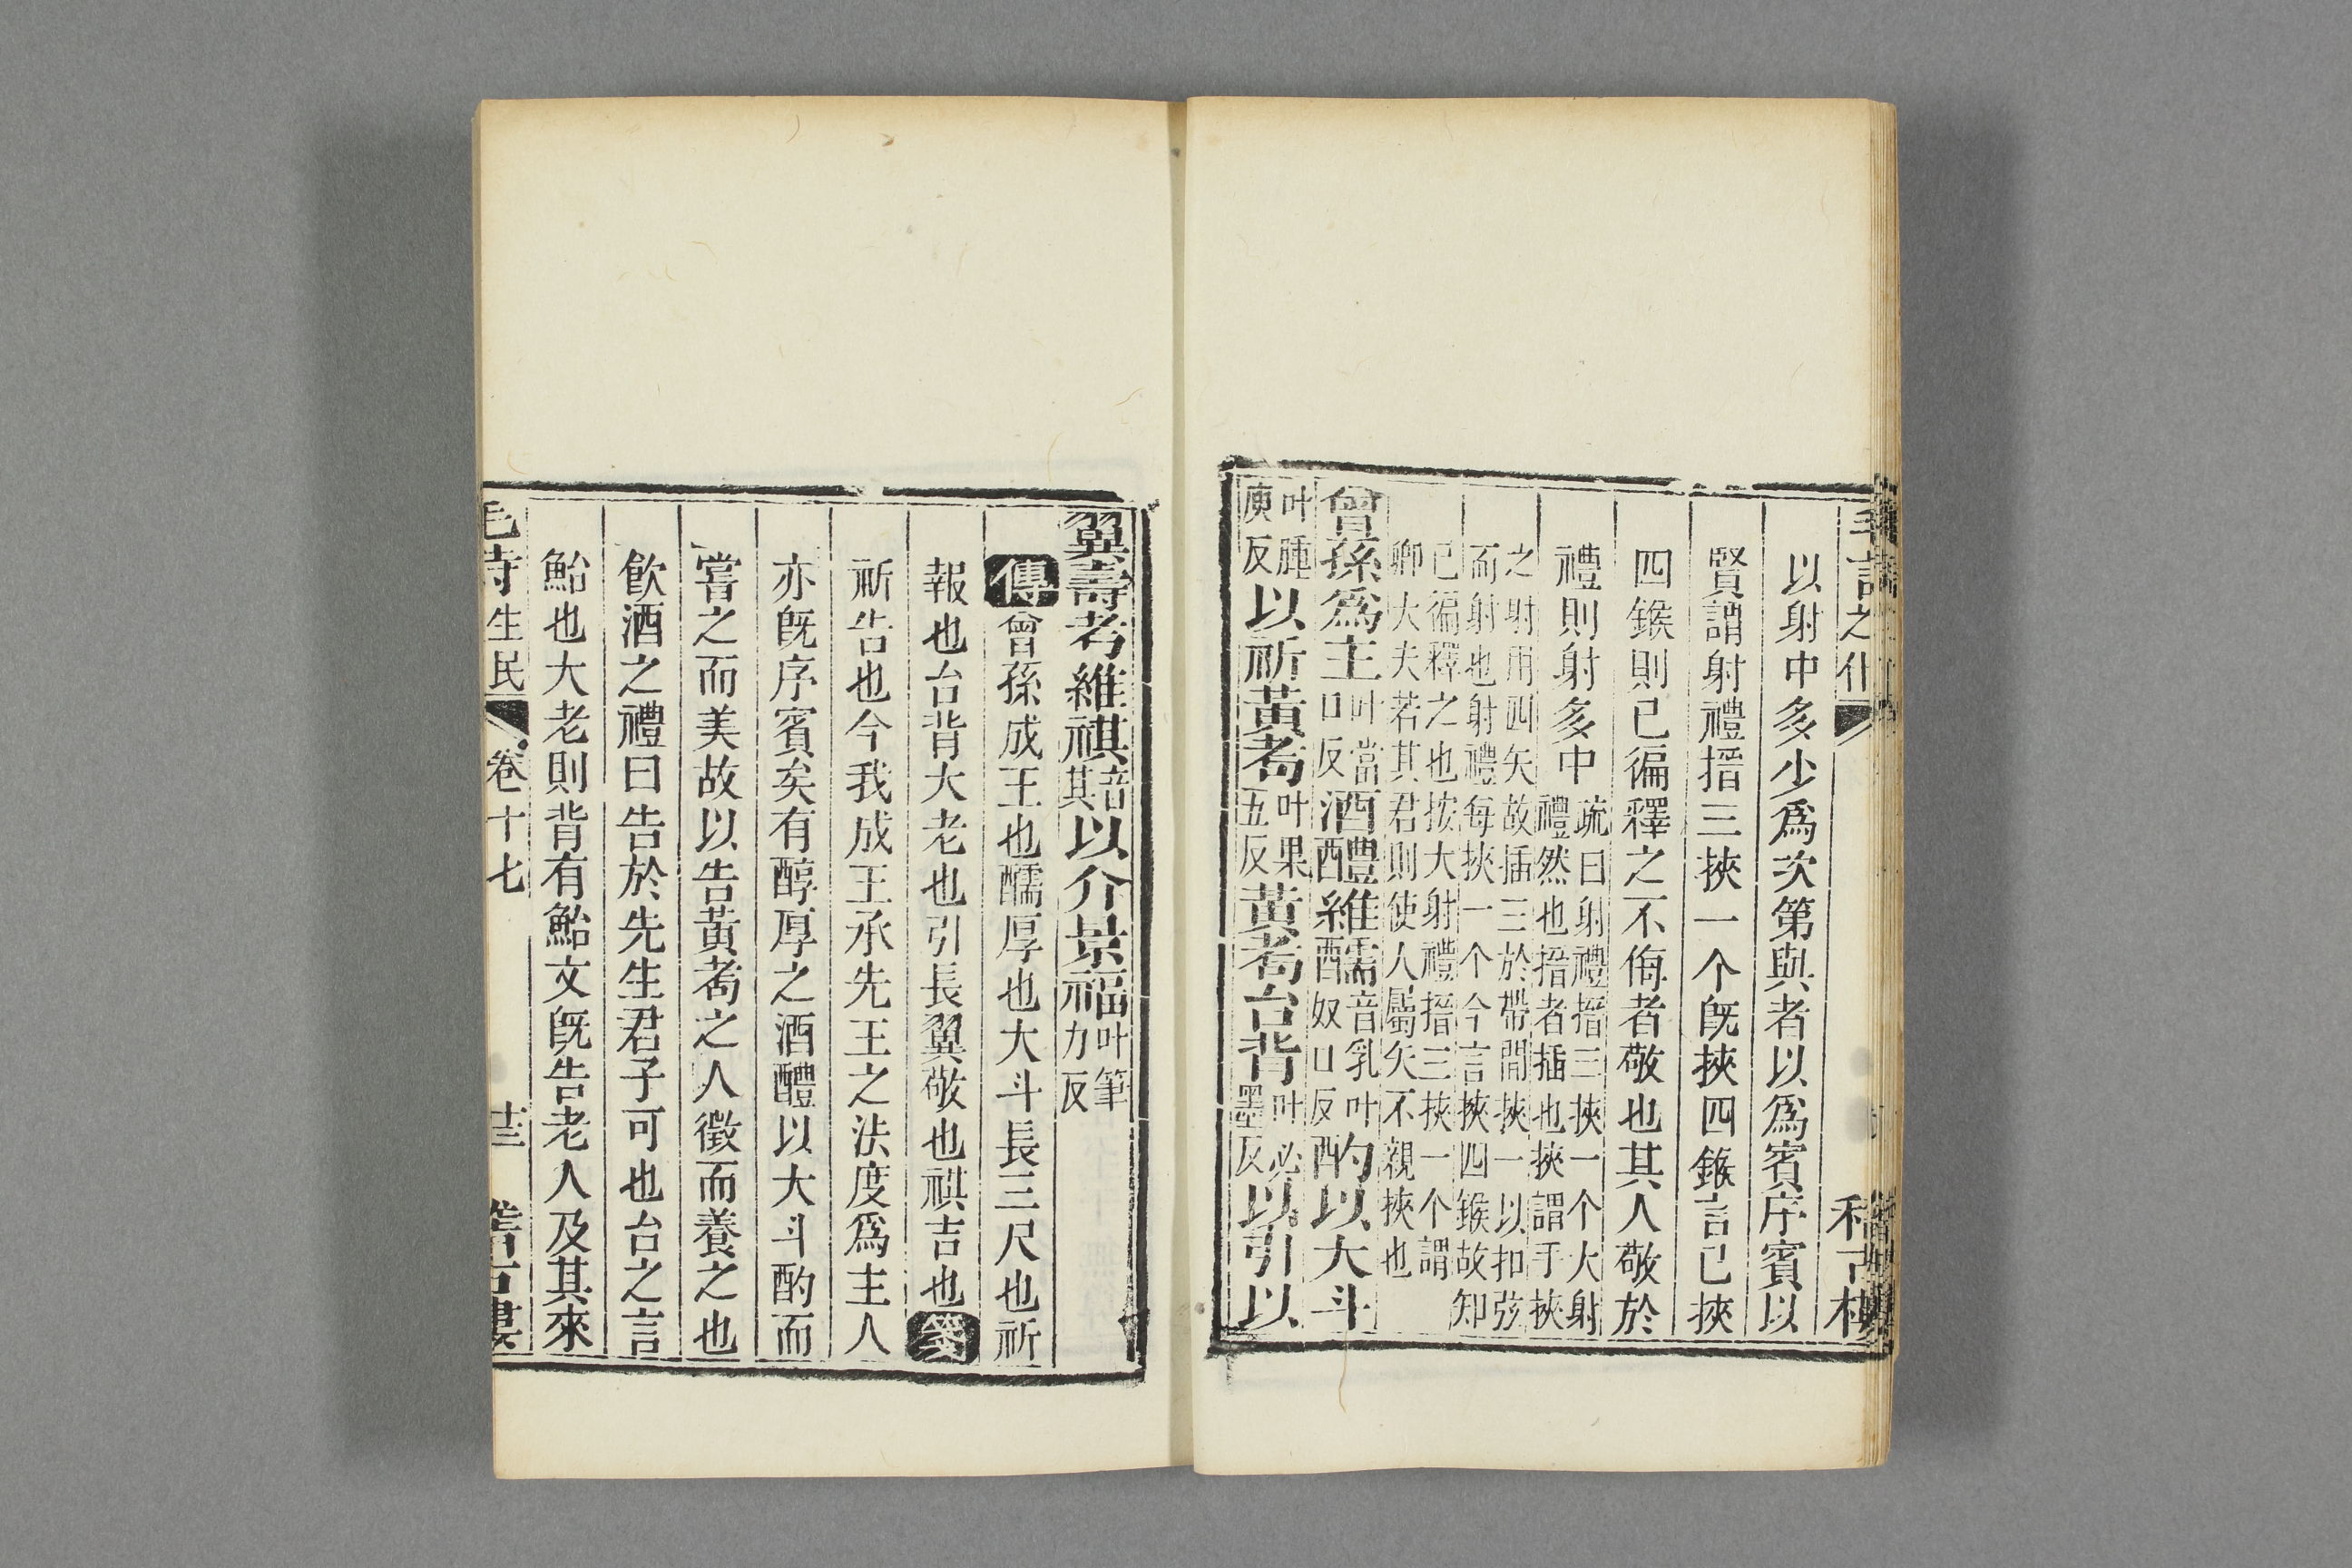 以射中多少爲次第與者以爲賓序賓以
賢謂射禮搢三挾一个旣挾四鍭言已挾
四鍭則已徧釋之不侮者敬也其人敬於
禮則射多中疏曰射禮搢三挾一个大射
禮然也搢者插也挾謂手挾
之射用四矢故插三於帶閒挾一以扣弦
而射也射禮每挾一个今言挾四鍭故知
已徧釋之也按大射禮搢三挾一个謂
卿大夫若其君則使人屬矢不親挾也
曾孫爲主叶當口反酒醴維醹音乳叶奴口反酌以大斗
叶腫庾反以祈黃耇叶果五反黃耇台背叶必墨反以引以
翼壽考維祺音其以介景福叶筆力反
傳曾孫成王也醹厚也大斗長三尺也祈
報也台背大老也引長翼敬也祺吉也箋
祈告也今我成王承先王之法度爲主人
亦旣序賓矣有醇厚之酒醴以大斗酌而
嘗之而美故以告黃耇之人徵而養之也
飮酒之禮曰告於先生君子可也台之言
鮐也大老則背有鮐文旣告老人及其來
毛詩生民 卷十七